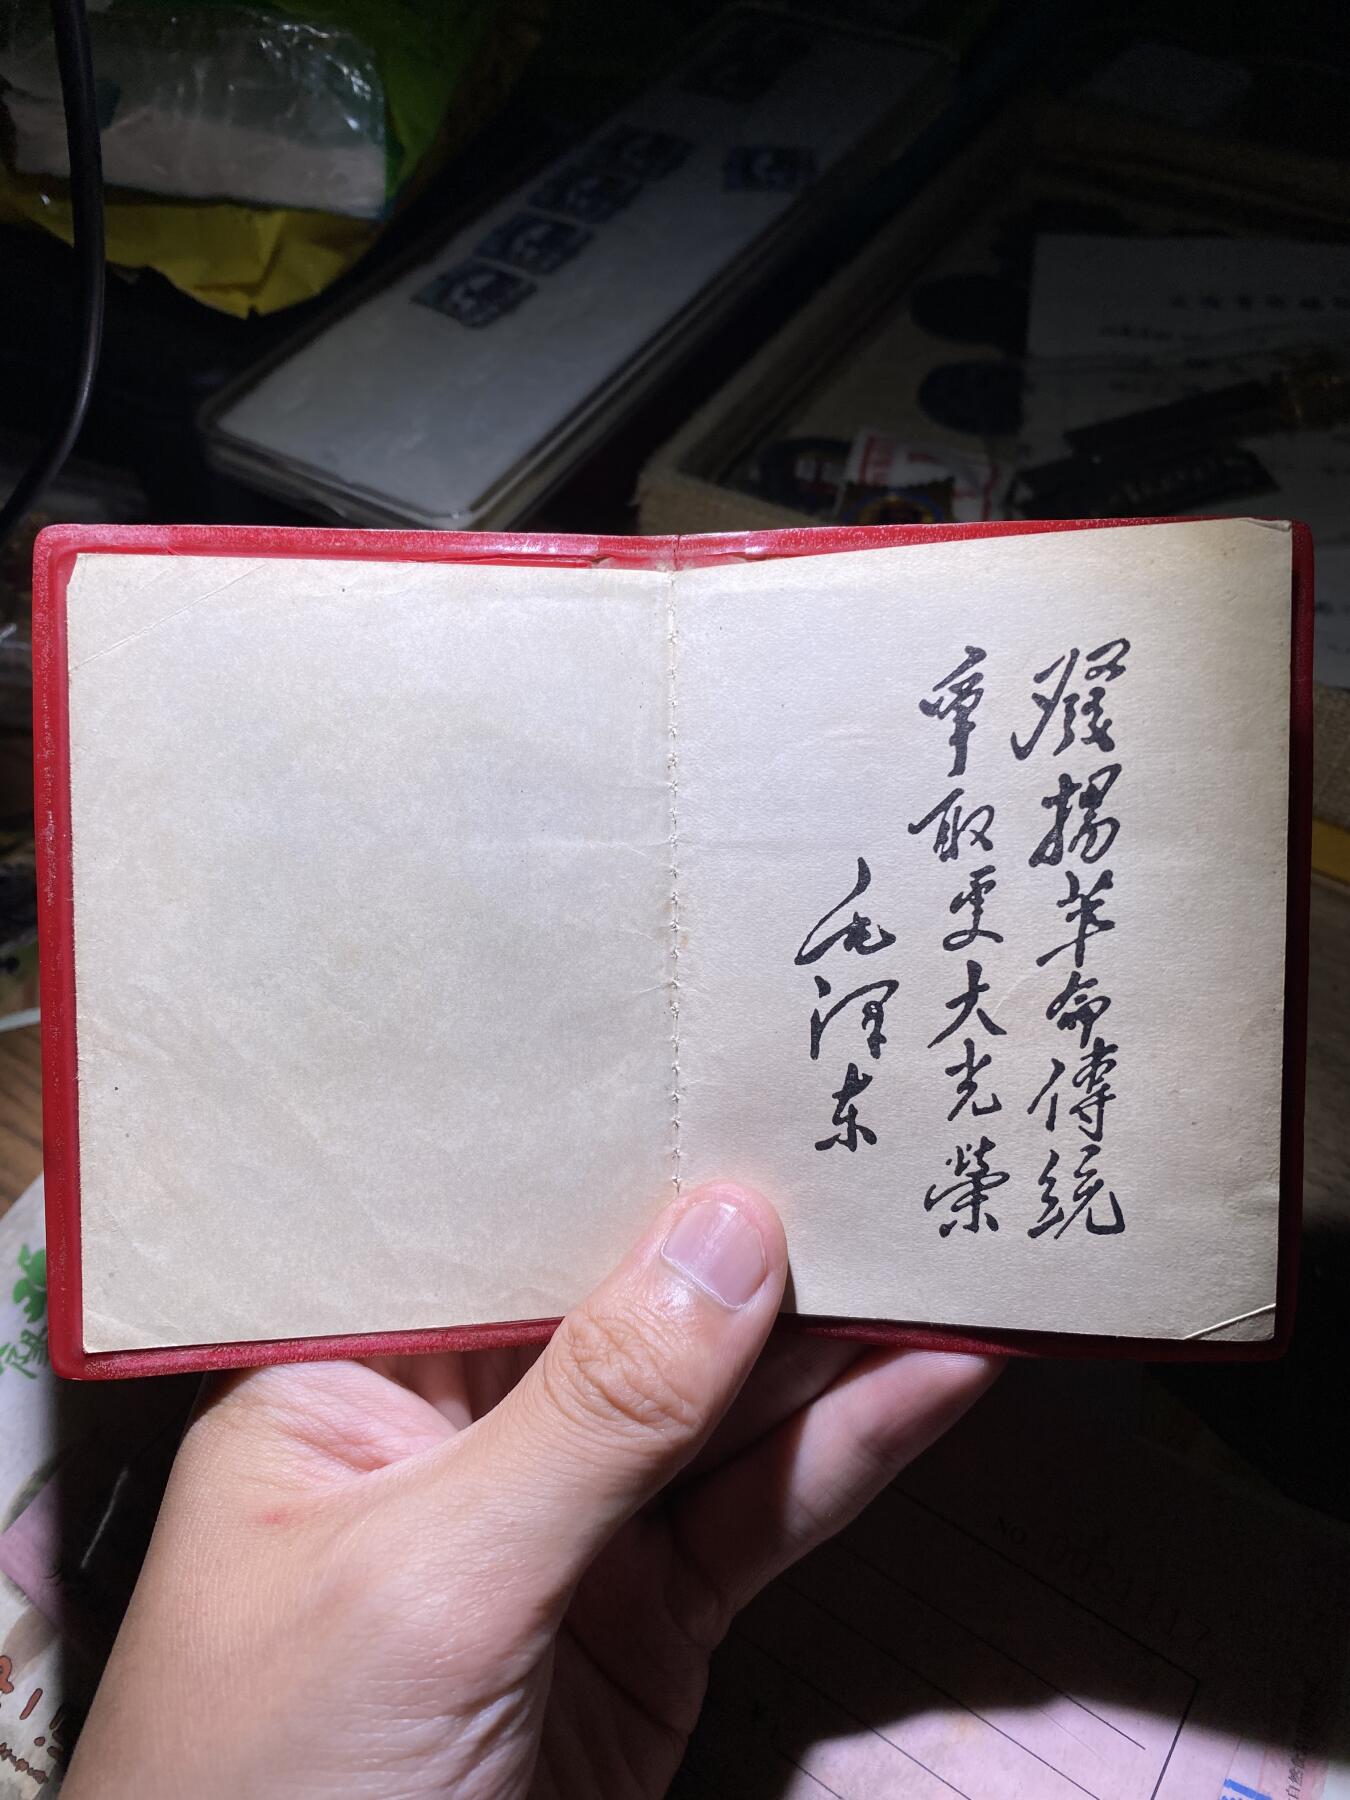 發揚革命傳統
爭取更大光榮
毛澤东
NO. 0024117